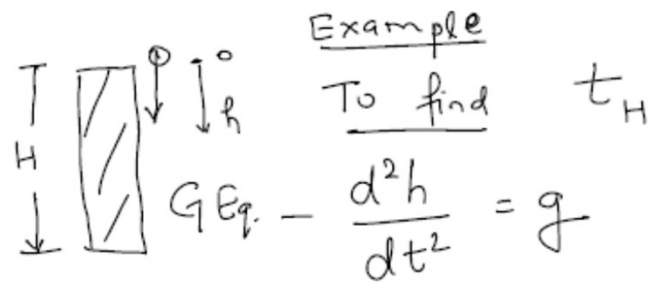 Example
To find t_H
H
o
h
G Eq. - d²h/dt² = g